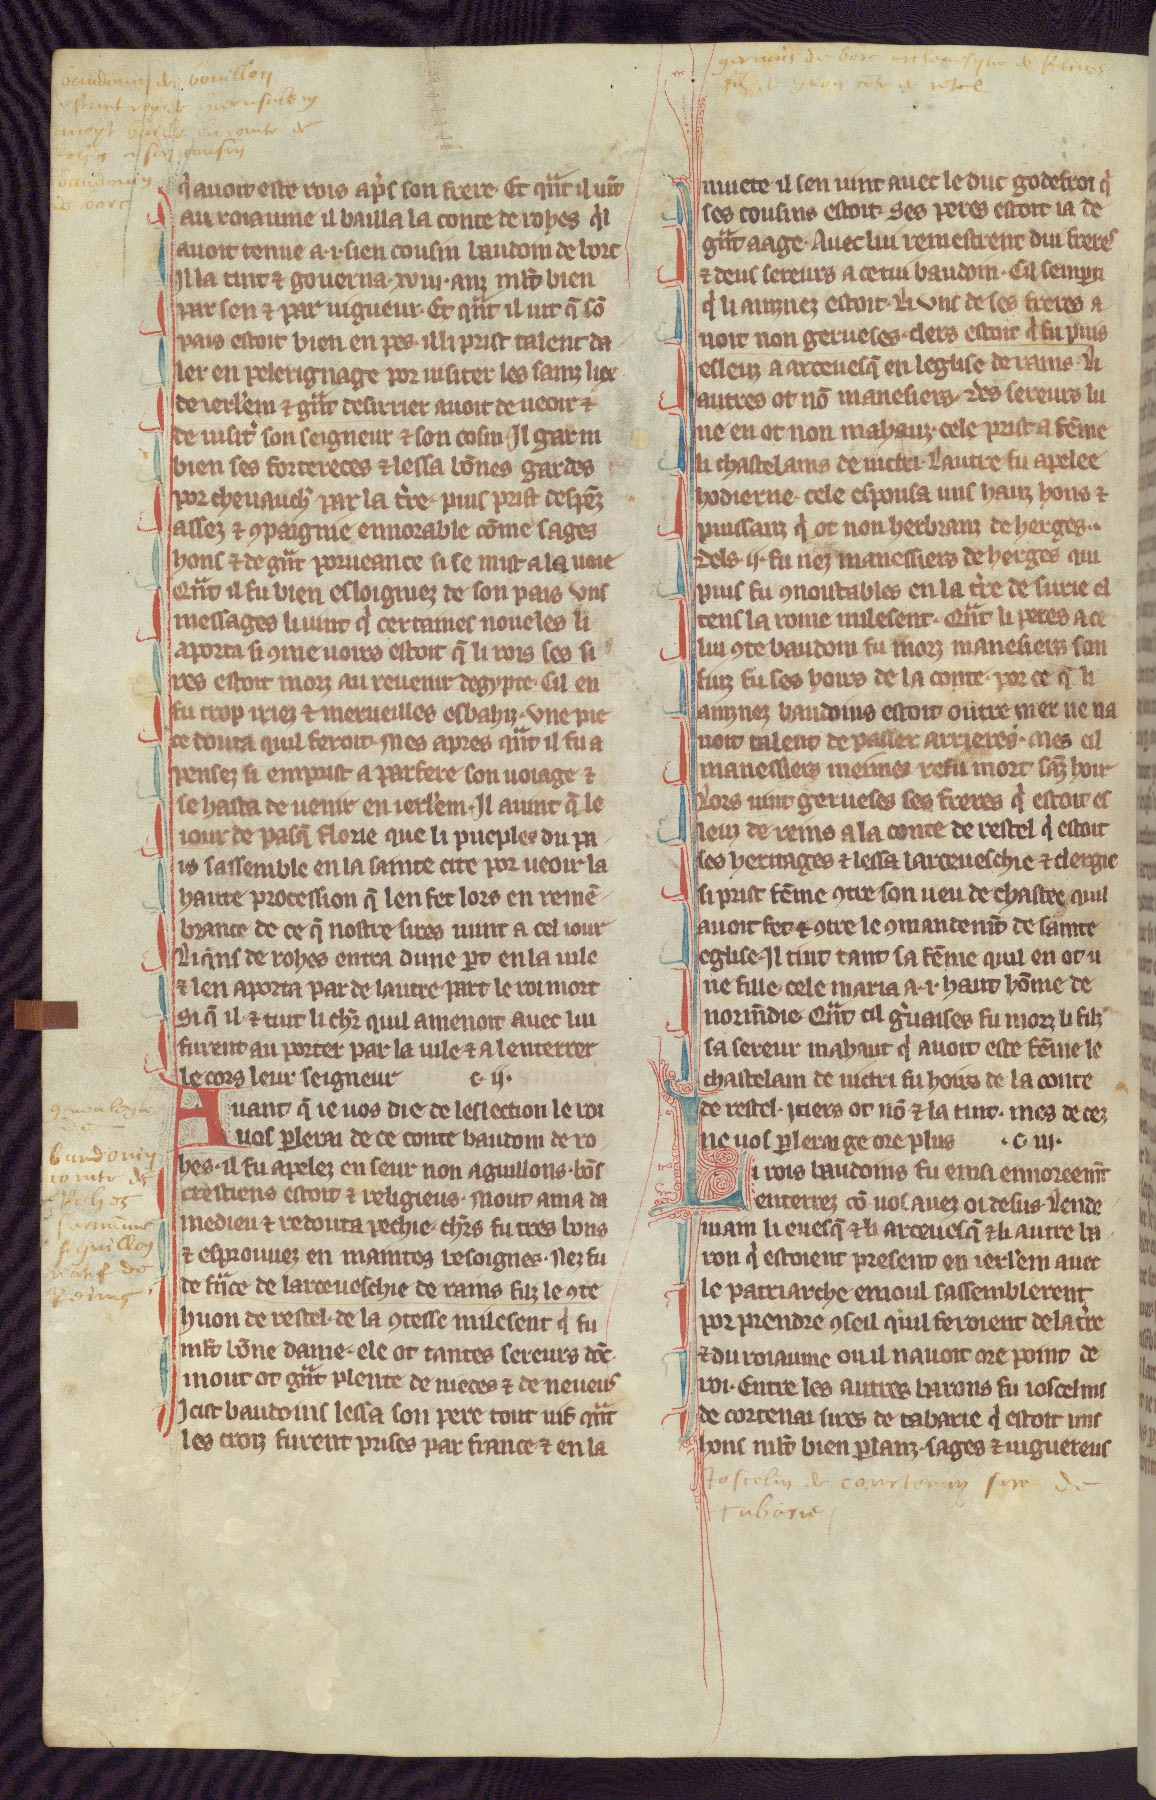 baudouin de bouillon
estant roy de hierusalem
baudouin
de borc
q̃ auoit este rois ap̃s son frere· Et q̃nt il uit
au roiaume il bailla la conte de rohes q̃l
auoit tenue a·i·sien cousin baudoin de borc
Il la tint ⁊ gouerna·xviii·anz ml̃t bien
par sen ⁊ par uigueur· Et q̃nt il uit q̃ sõ
pais estoit bien en pes· illi prist talent da
ler en pelerignage por uisiter les sainz liex
de ierl'em ⁊ g̃nt desirrier auoit de ueoir ⁊
de uisit' son seigneur ⁊ son cosin· Il garni
bien ses fortereces ⁊ lessa bõnes gardes
por cheuauch' par la t're· puis prist despẽz
assez ⁊ ꝯpaignie ennorable cõme sages
hons ⁊ de g̃nt porueance si se mist a la uoie
Q̃nt il fu bien esloigniez de son pais vns
messages li uint q̃ certaines noueles li
aporta si ꝯme uoirs estoit q̃ li rois ses si
res estoit morz au reuenir degypte· Cil en
fu trop iriez ⁊ merueilles esbahiz· vne pie
ce douta quil feroit· Mes apres q̃nt il fu a
pensez si emprist a parfere son uoiage ⁊
se hasta de uenir en ierl'em· Il auint q̃ le
iour de pasq̃ florie que li pueples du pa
is sassemble en la sainte cite por ueoir la
haute procession q̃ len fet lors en remẽ-
brance de ce q̃ nostre sires uint a cel iour
Li q̃ns de rohes entra dune p̱t en la uile
⁊ len aporta par de lautre part le roi mort
Si q̃ il ⁊ tuit li chr̃ quil amenoit auec lui
furent au porter par la uile ⁊ a lenterrer
le cors leur seigneur c· ii·
genealogie
de
baudouin
conte de
Rohes
surnomme
Aguillon
natif de
Reims
Auant q̃ ie uos die de leslection le roi
uos ꝑlerai de ce conte baudoin de ro
hes· il fu apelez en seur non aguillons· bõs
crestiens estoit ⁊ religieus· Mout ama da
medieu ⁊ redouta pechie· chr̃s fu tres bons
⁊ esprouuez en maintes besoignes· Nez fu
de fr̃ce de larceueschie de rains filz le ꝯte
huon de restel· de la ꝯtesse milesent q̃ fu
ml̃t bõne dame· ele ot tantes sereurs dõt
mout ot g̃nt plente de nieces ⁊ de neueus
Icist baudoins lessa son pere tout uif q̃nt
les croiz furent prises par france ⁊ en la
geruais de borc archeuesque de Reims
filz de huon conte de retel
muete il sen uint auec le duc godefroi q̃
ses cousins estoit· Ses peres estoit ia de
g̃nt aage· Auec lui remestrent dui freres
⁊ deus sereurs a cetui baudoin· Cil
q̃ li ainznez estoit· Li vns de ses freres a
uoit non gerueses· clers estoit q̃ fu puis
esleuz a arceuesq̃ en leglise de rains· Li
autres ot nõ manesiers· Des sereurs lu
ne en ot non mahauz· cele prist a fẽme
li chastelains de uictri· Lautre fu apelee
hodierne· cele espousa uns hauz hons ⁊
puissanz q̃ ot non herbranz de herges··
Dels ·ii· fu nez manessiers de herges qui
puis fu ꝯnoustables en la t're de surie el
tens la roine milesent· Q̃nt li peres a ce
lui ꝯte baudoin fu morz manesiers son
fuiz fu ses hoirs de la conte· por ce q̃ li
ainznez baudoins estoit outre mer ne na
uoit talent de passer arrieres· Mes cil
manessiers meimes refu mort sãz hoir
Lors uint gerueses ses freres q̃ estoit es
leuz de reins a la conte de restel q̃ estoit
ses heritages ⁊ lessa larceueschie ⁊ clergie
si prist fẽme ꝯtre son ueu de chastee quil
auoit fet ⁊ ꝯtre le ꝯmandemẽt de sainte
eglise· Il tint tant sa fẽme quil en ot u
ne fille· cele maria a·i· haut hõme de
normãdie· Q̃nt cil g'uaises fu morz li filz
sa sereur mahaut q̃ auoit este fẽme le
chastelain de uictri fu hoirs de la conte
de restel· Itiers ot nõ ⁊ la tint· mes de cez
ne uos ꝑlerai ge ore plus ·c· iii·
Li rois baudoins fu einsi ennoreemẽt
enterrez cõ uos auez oi desus· Lende
main li euesq̃ ⁊ li arceuesq̃ ⁊ li autre ba
ron q̃ estoient present en ierl'em auec
le patriarche ernoul sassemblerent
por prendre ꝯseil quil feroient de la t're
⁊ du roiaume ou il nauoit ore point de
roi· Entre les autres barons fu ioscelins
de cortenai sires de tabarie q̃ estoit uns
hons ml̃t bien ꝑlanz· sages ⁊ uiguereus
Joscelin de courtenay sire de
tabarie